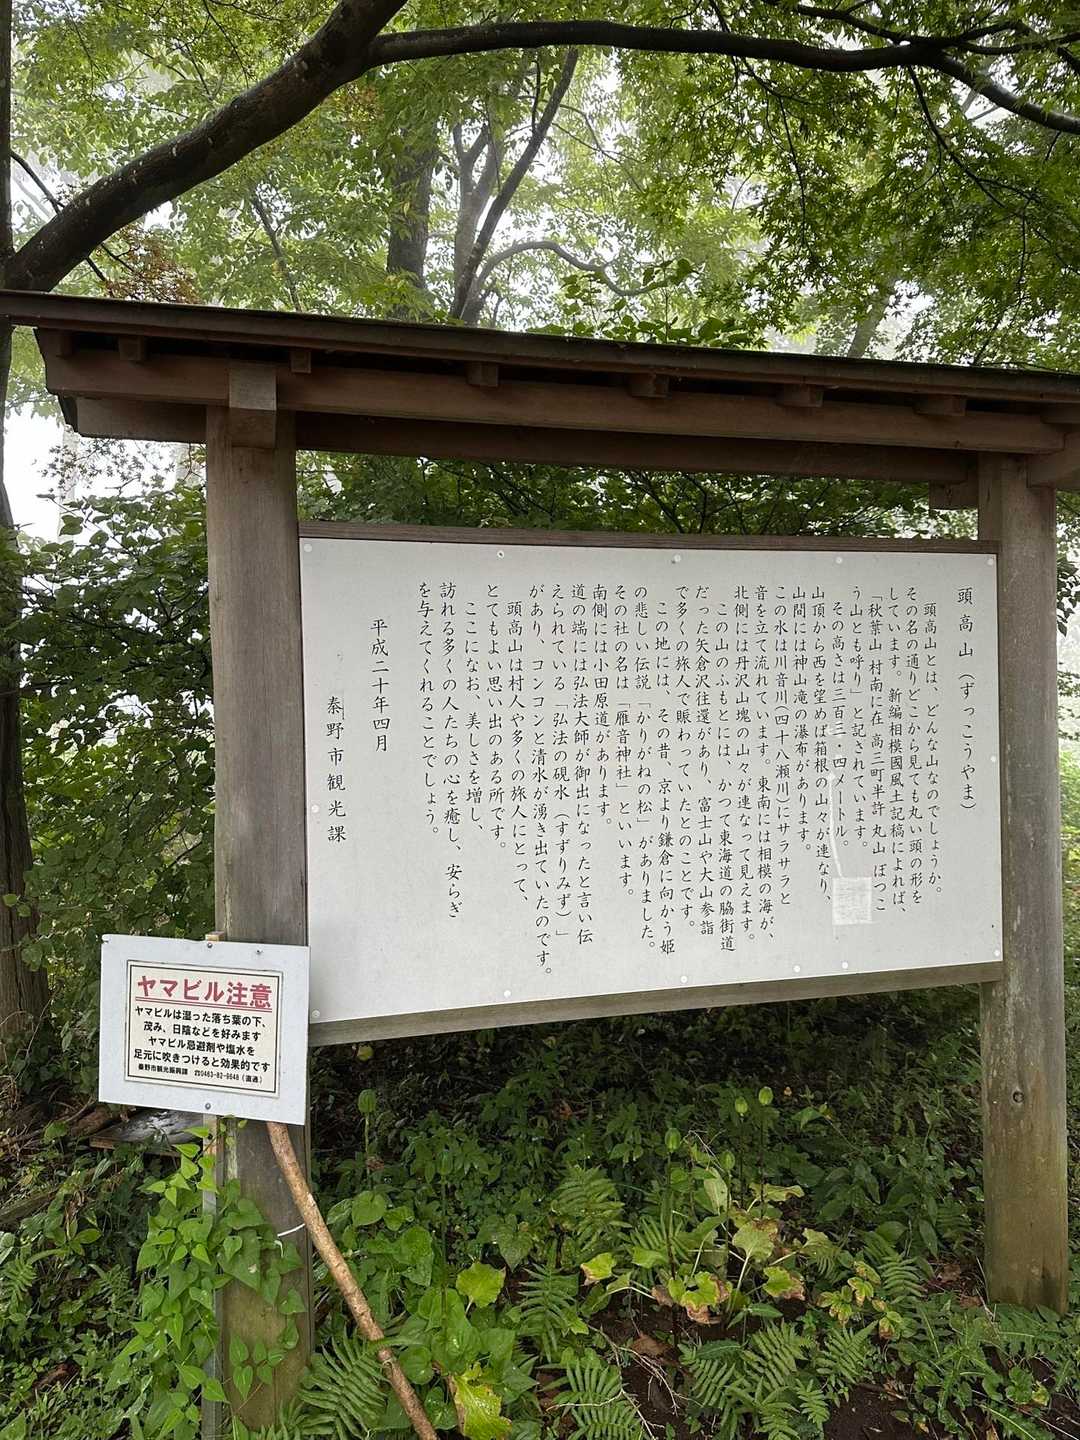 頭高山(ずっこうやま)
頭高山とは、どんな山なのでしょうか。
その名の通りどこから見ても丸い頭の形を
しています。新編相模國風土記稿によれば、
「秋葉山 村南に在 高三町半許 丸山 ぼつこ
う山とも呼り」と記されています。
その高さは三百三・四メートル。
山頂から西を望めば箱根の山々が連なり、
山間には神山滝の瀑布があります。
この水は川音川(四十八瀬川)にサラサラと
音を立て流れています。東南には相模の海が、
北側には丹沢山塊の山々が連なって見えます。
この山のふもとには、かつて東海道の脇街道
だった矢倉沢往還があり、富士山や大山参詣
で多くの旅人で賑わっていたとのことです。
この地には、その昔、京より鎌倉に向かう姫
の悲しい伝説「かりがねの松」がありました。
その社の名は「雁音神社」といいます。
南側には小田原道があります。
道の端には弘法大師が御出になったと言い伝
えられている「弘法の硯水(すずりみず)」
があり、コンコンと清水が湧き出ていたのです。
頭高山は村人や多くの旅人にとって、
とてもよい思い出のある所です。
ここになお、美しさを増し、
訪れる多くの人たちの心を癒し、安らぎ
を与えてくれることでしょう。
平成二十年四月
秦野市観光課
ヤマビル注意
ヤマビルは湿った落ち葉の下、
茂み、日陰などを好みます
ヤマビル忌避剤や塩水を
足元に吹きつけると効果的です
秦野市観光振興課 ☎0463-82-9648(直通)